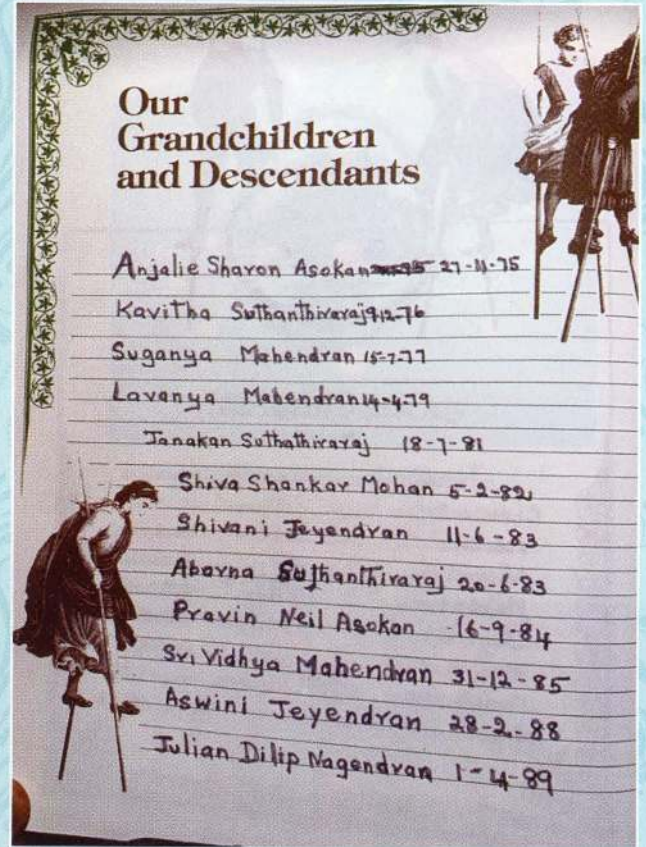 Our
Grandchildren
and Descendants
Anjalie Sharon Asokan 27-11-75
Kavitha Suthanthiraraj 9-12-76
Suganya Mahendran 15-7-77
Lavanya Mahendran 14-4-79
Janakan Suthathiraraj 18-7-81
Shiva Shankar Mohan 5-2-82
Shivani Jeyendran 11-6-83
Abarna Suthanthiraraj 20-6-83
Pravin Neil Asokan 16-9-84
Sri Vidhya Mahendran 31-12-85
Aswini Jeyendran 28-2-88
Julian Dilip Nagendran 1-4-89